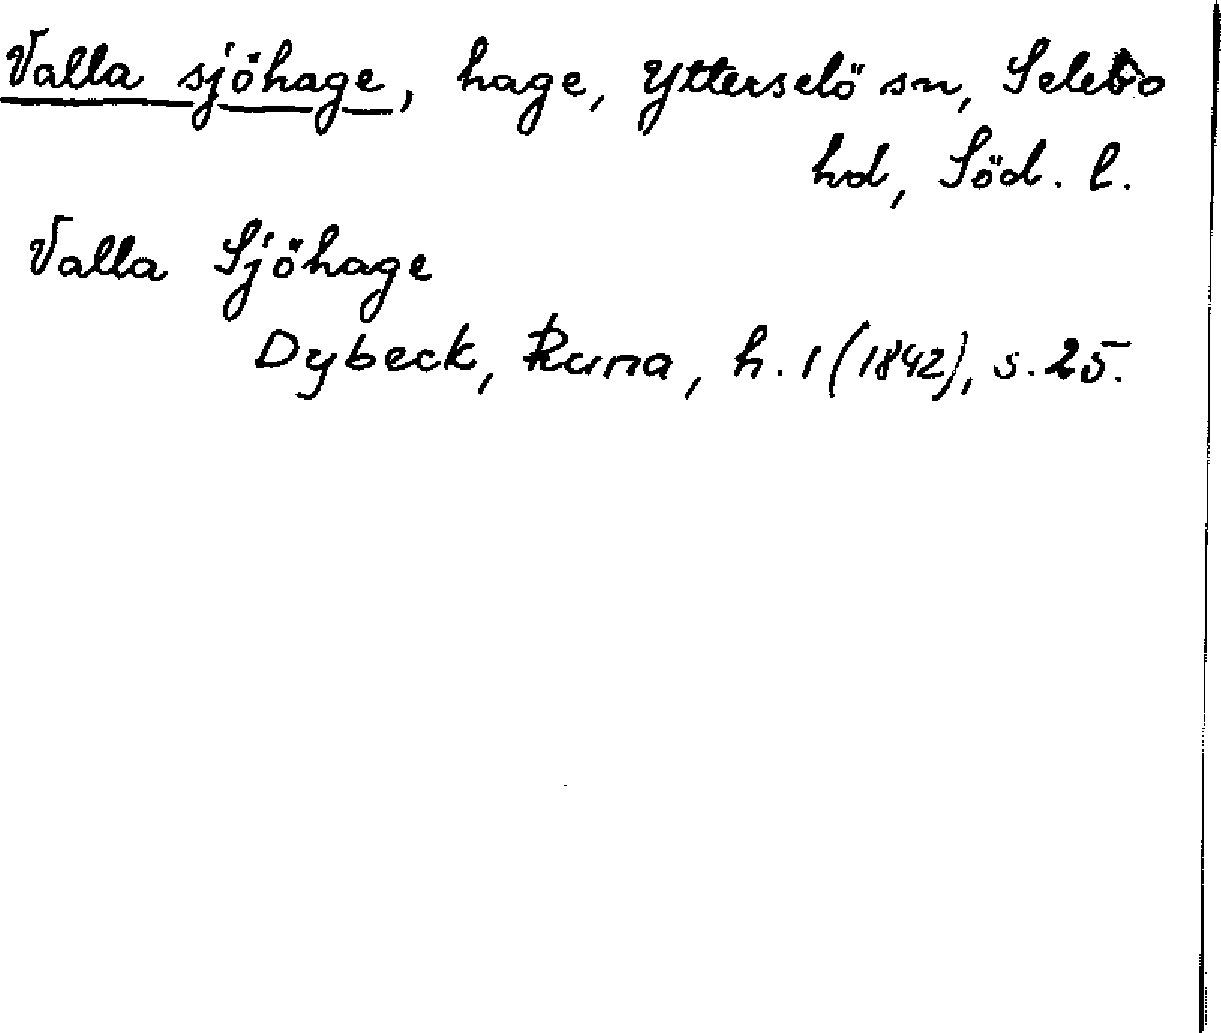 Valla sjöhage, hage, Ytterselö sn, Selebo
hd, Söd. l.
Valla Sjöhage
Dybeck, Runa, h. 1 (1842), s. 25.